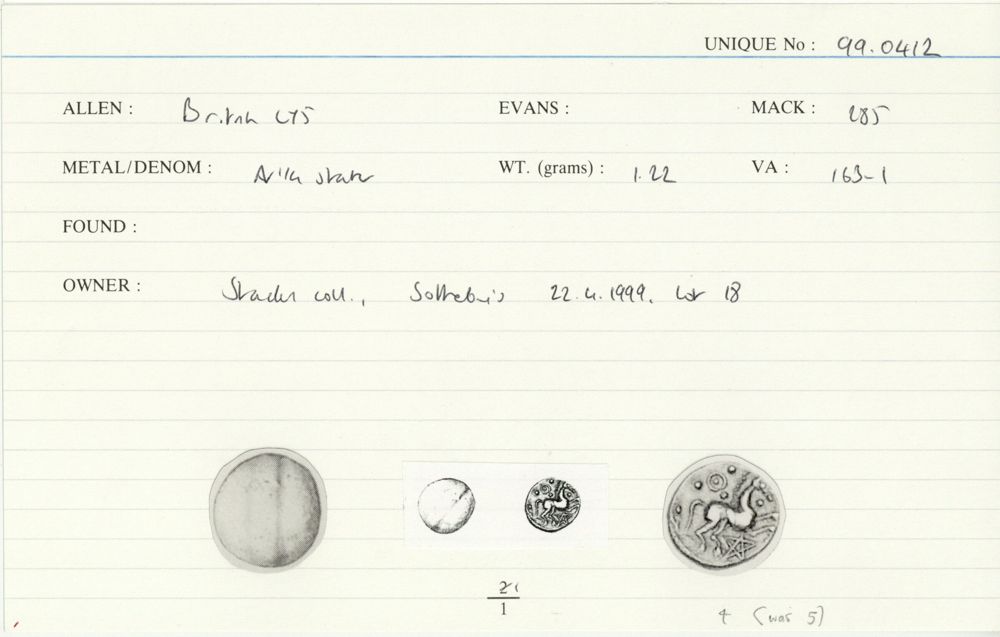 UNIQUE No : 99.0412
ALLEN : British LY5 EVANS : MACK : 285
METAL/DENOM : AV 1/4 stater WT. (grams) : 1.22 VA : 163-1
FOUND :
OWNER : coll., Sotheby's 22.4.1999, lot 18
1
4 (was 5)